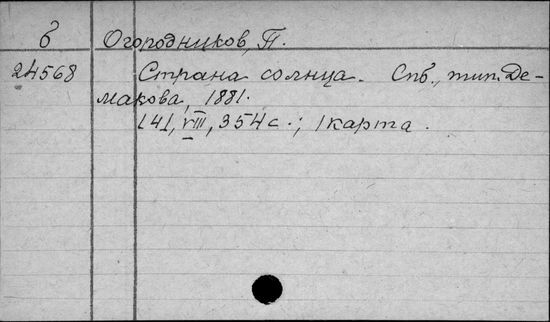 б Огородников, П.
24568 Страна солнца. Спб., тип. Де-
макова, 1881.
141, VIII, 354 с.; 1 карта.